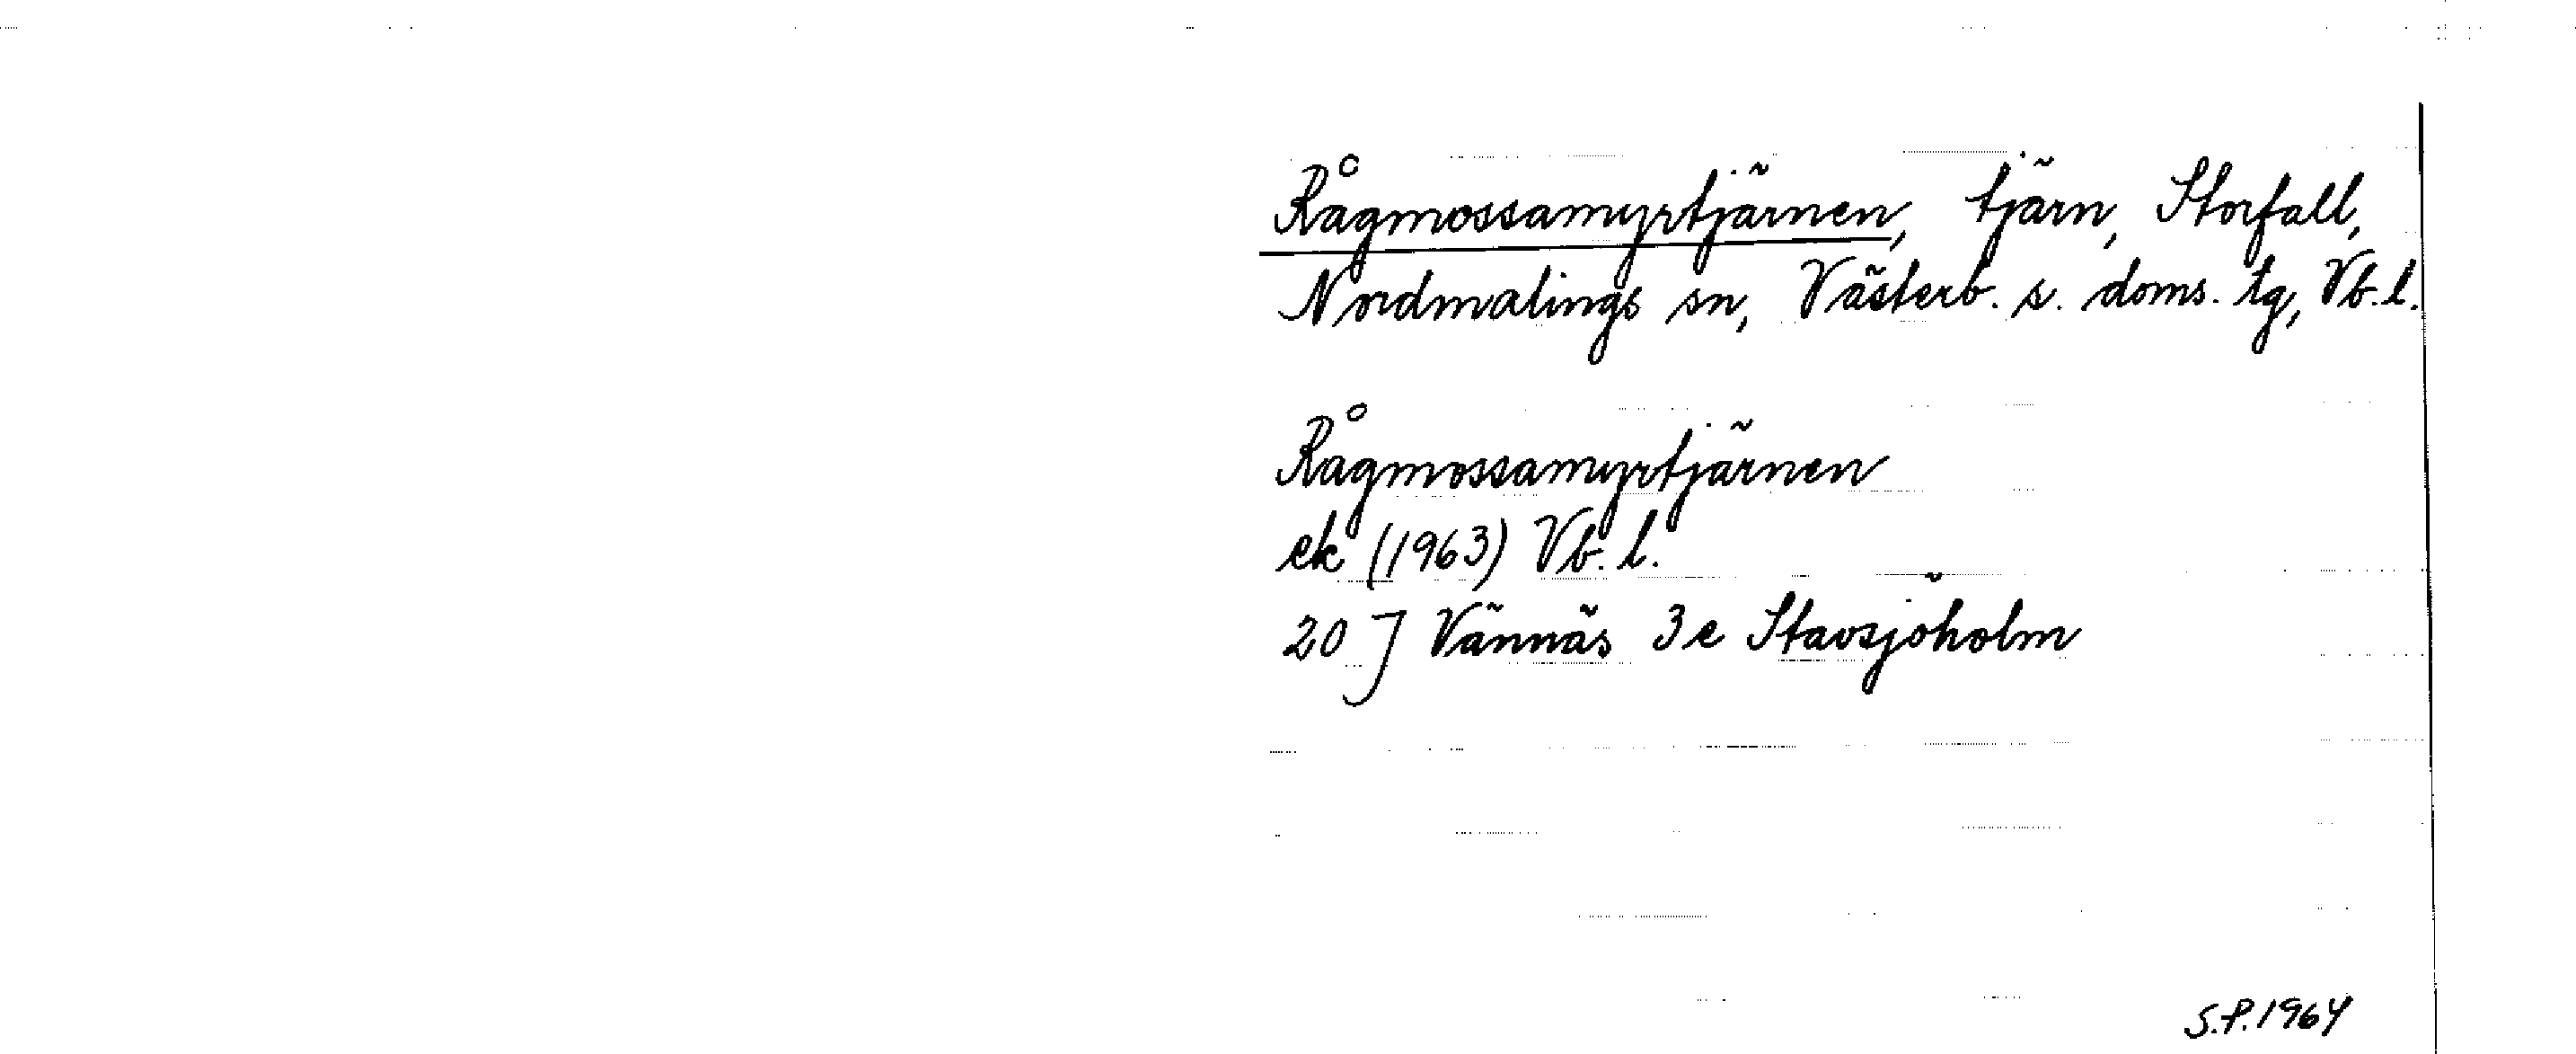 Rågmossamyrtjärnen, tjärn, Storfall,
Nordmalings sn, Västerb. s. doms. tg, Vb. l.
Rågmossamyrtjärnen
ek (1963) Vb. l.
20 J Vännäs 3 e Stavsjöholm
S.P. 1964